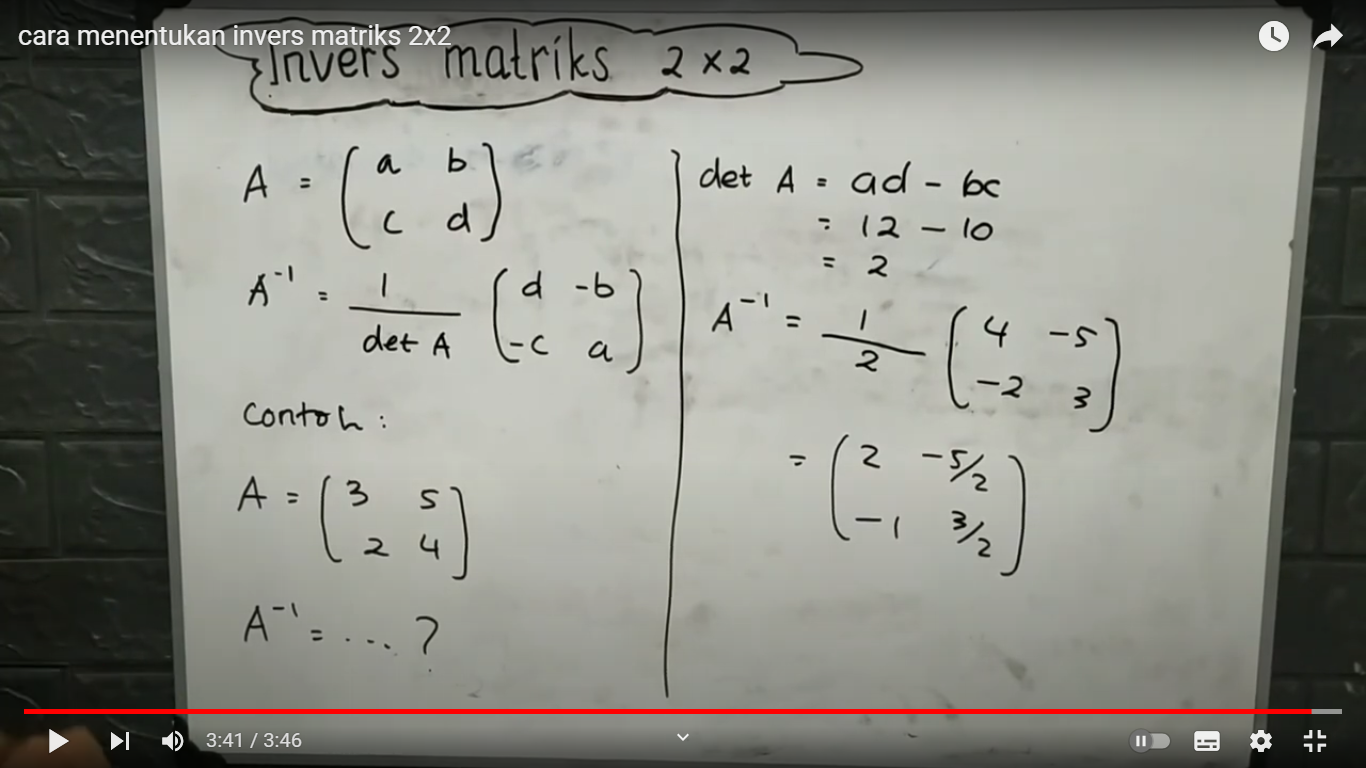 cara menentukan invers matriks 2x2
Invers matriks 2 x 2
A = ( a b
c d )
A⁻¹ = 1
det A ( d -b
-c a )
Contoh :
A = ( 3 5
2 4 )
A⁻¹ = .... ?
det A = ad - bc
= 12 - 10
= 2
A⁻¹ = 1
2 ( 4 -5
-2 3 )
= ( 2 -5/2
-1 3/2 )
3:41 / 3:46